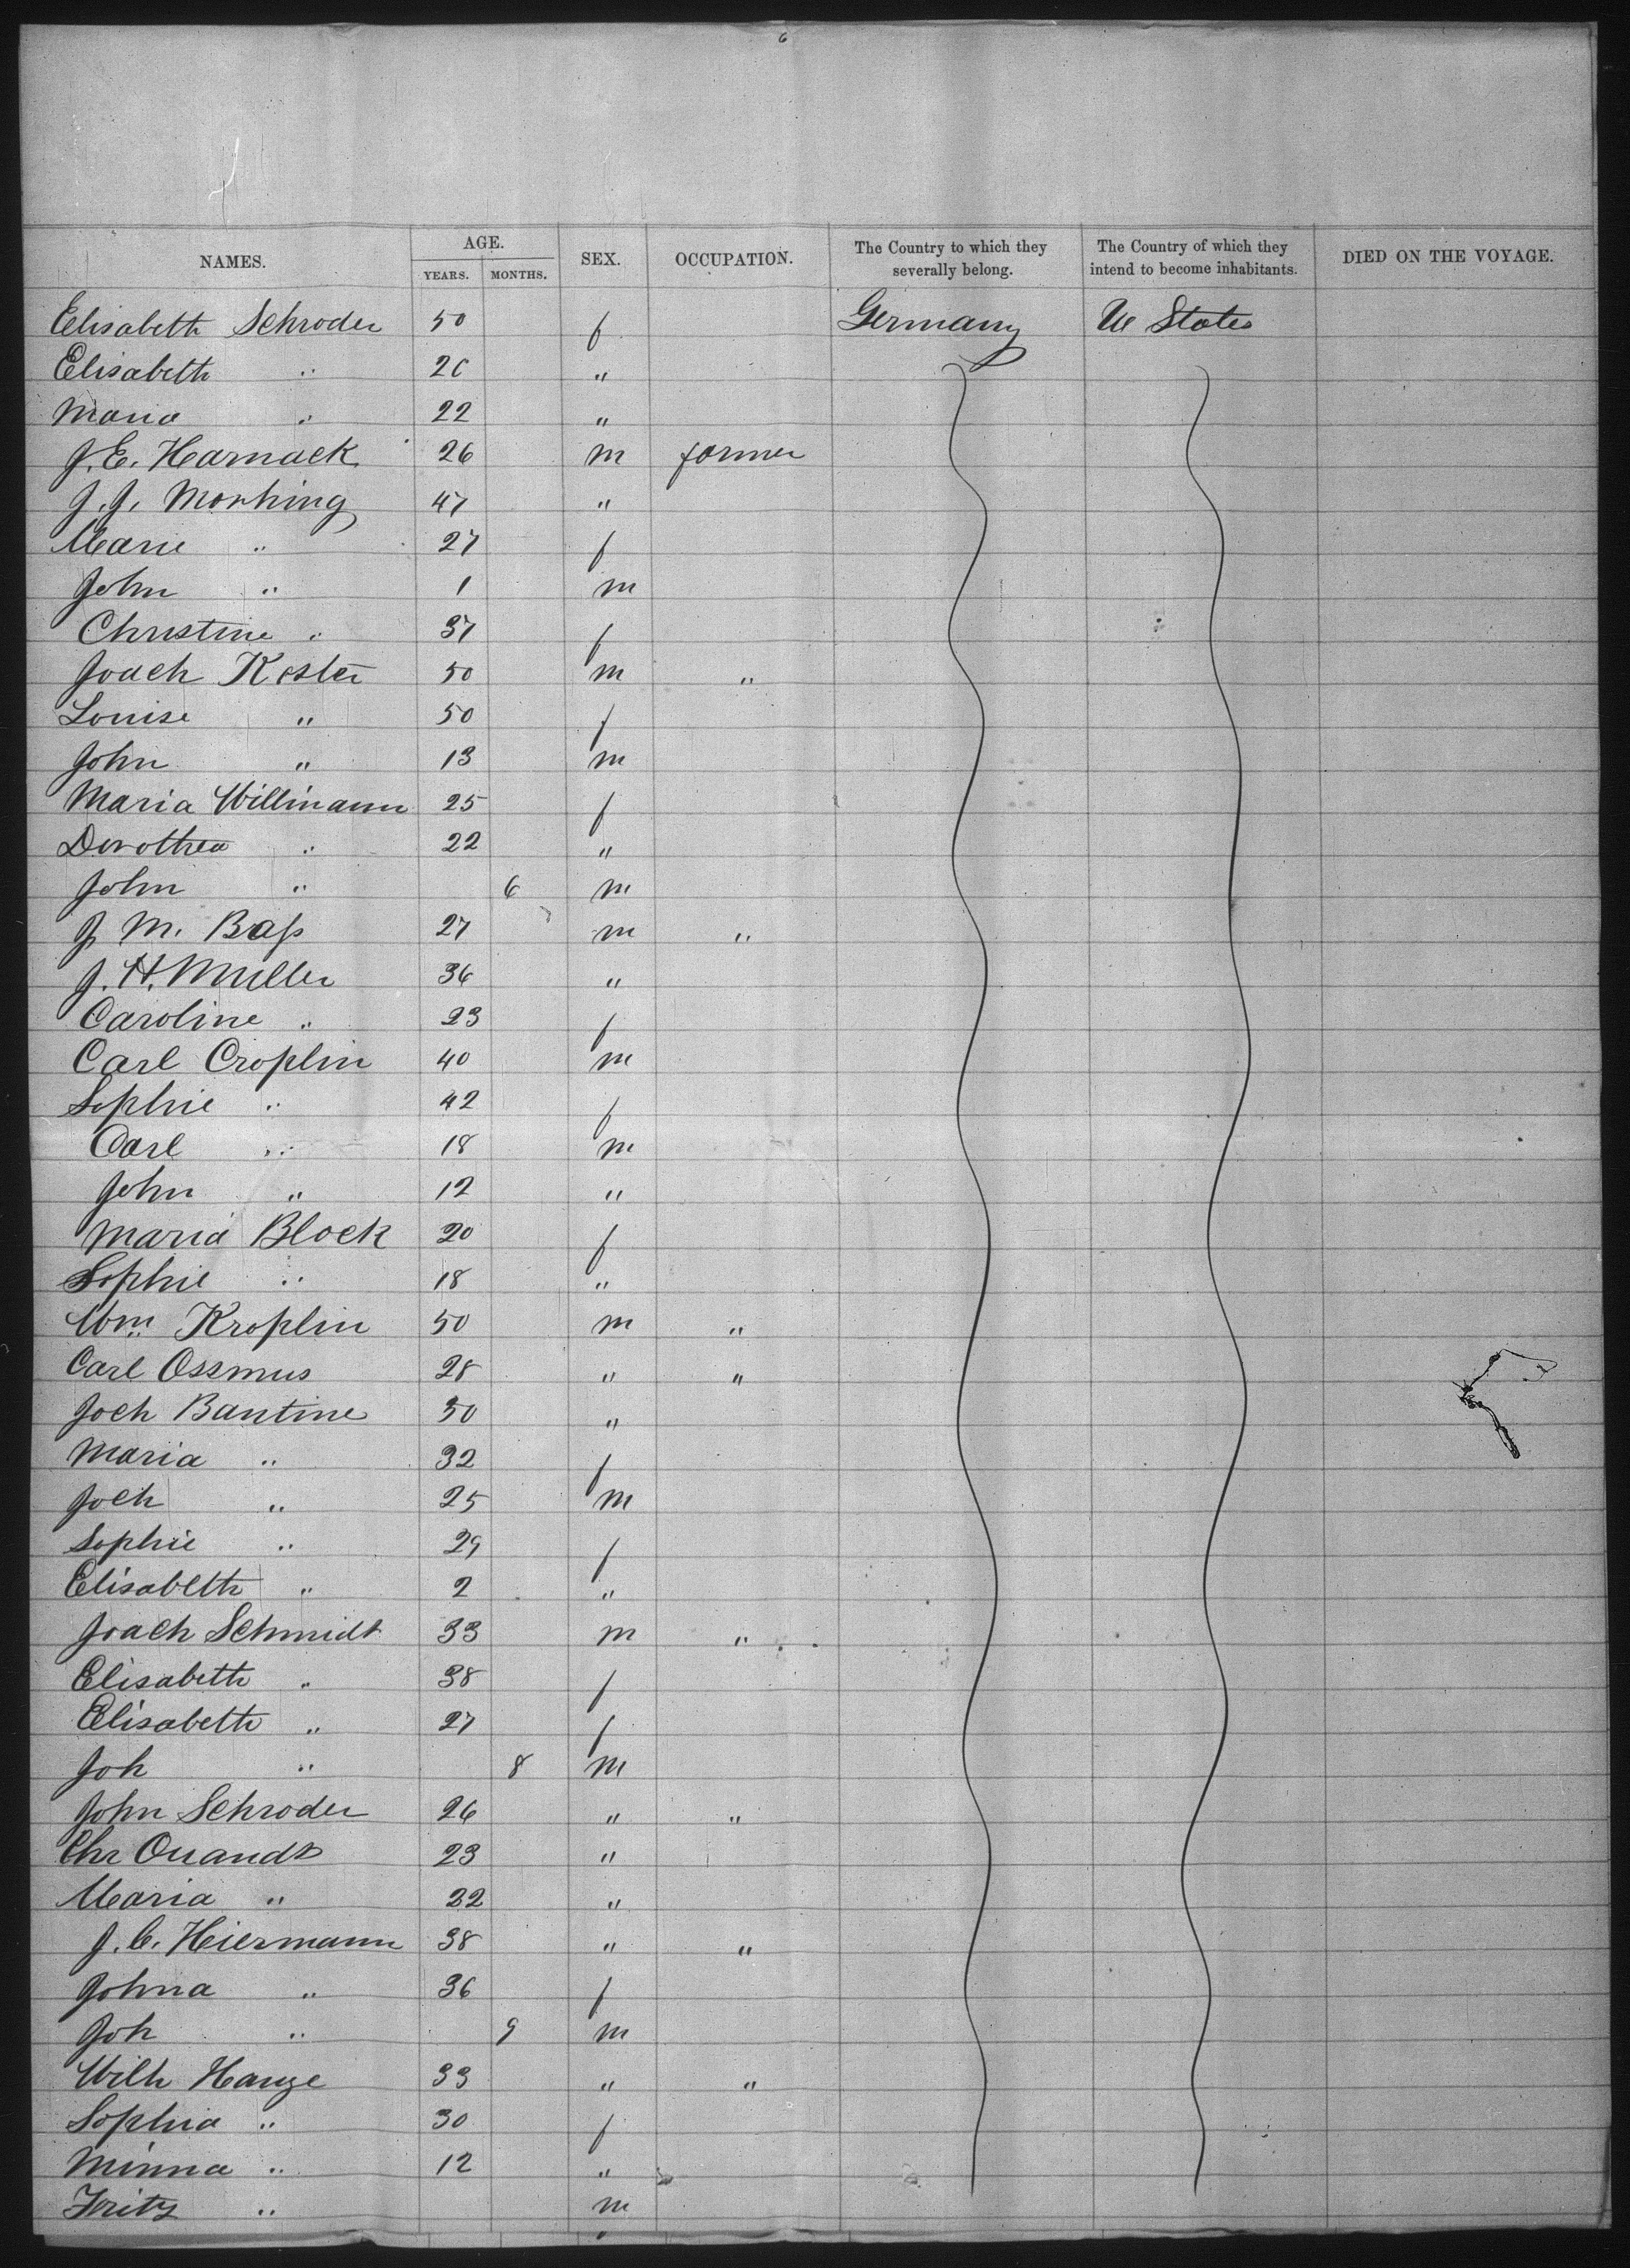 6
NAMES. AGE. YEARS. MONTHS. SEX. OCCUPATION. The Country to which they severally belong. The Country of which they intend to become inhabitants. DIED ON THE VOYAGE.
Elisabeth Schroder 50 f Germany U States
Elisabeth " 20 "
Maria " 22 "
J. E. Harnack 26 m farmer
J. J. Morhing 47 "
Marie " 27 f
John " 1 m
Christine " 37 f
Joach Koster 50 m "
Louise " 50 f
John " 13 m
Maria Willmann 25 f
Dorothea " 22 "
John " 6 m
J M. Bass 27 m "
J. H. Muller 36 "
Caroline " 23 f
Carl Croplin 40 m
Sophie " 42 f
Carl " 18 m
John " 12 "
Maria Block 20 f
Sophie " 18 "
Wm Kroplin 50 m "
Carl Ossmus 28 " "
Joch Bantine 30 "
Maria " 32 f
Joch " 25 m
Sophie " 29 f
Elisabeth " 2 "
Joach Schmidt 33 m "
Elisabeth " 38 f
Elisabeth " 27 f
Joh " 8 m
John Schroder 26 " "
Chr Quandt 23 "
Maria " 22 "
J. C. Hiermann 38 " "
Johna " 36 f
Joh " 9 m
Wilh Hange 33 " "
Sophia " 30 f
Minna " 12 "
Fritz " m